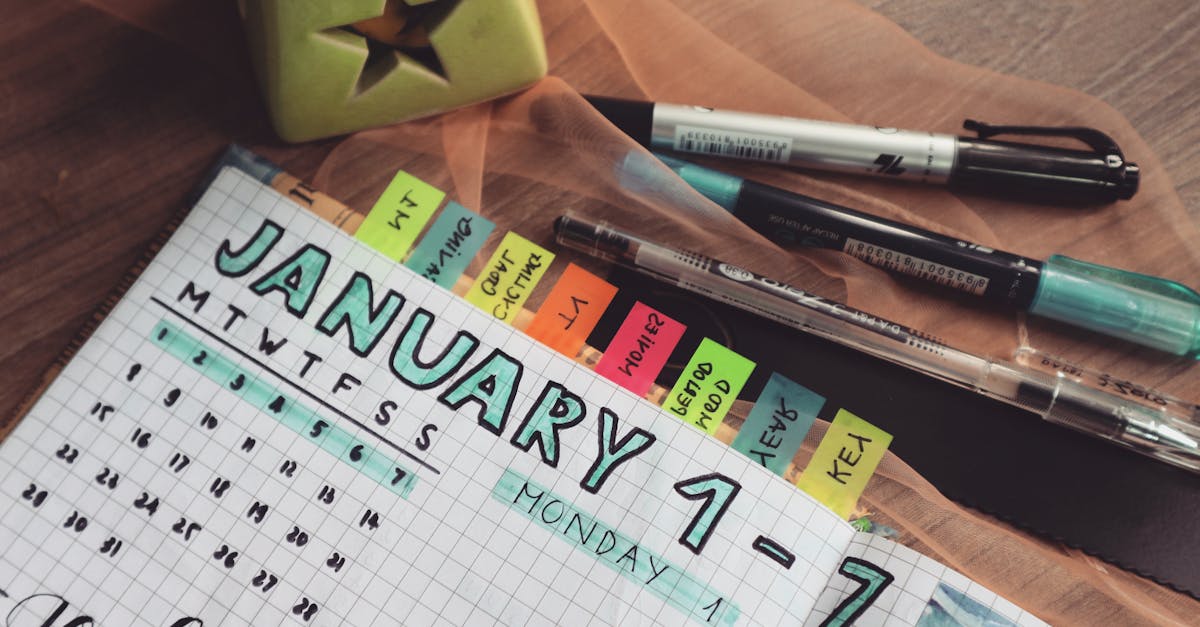 JANUARY 1-7
M T W T F S S
1 2 3 4 5 6 7
8 9 10 11 12 13 14
15 16 17 18 19 20 21
22 23 24 25 26 27 28
29 30 31
MONDAY 1
SAVING
GOAL
CYCLING
TV
MOVIES
PERIOD
MOOD
YEAR
KEY
8935001810339
RECAP AFTER USE
8935001810308